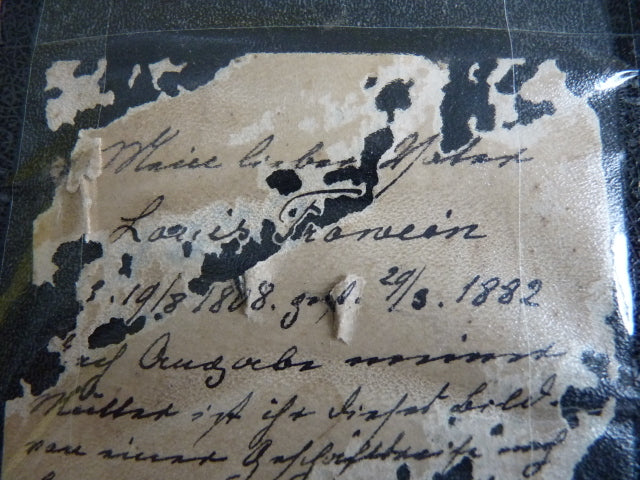 Mein lieber Vater
Louis Frowein
. 19/8 1808. gest. 29/3. 1882
Nach Angabe meiner
Mutter ist ihr dieses Bild
von einer Geschäftsreise